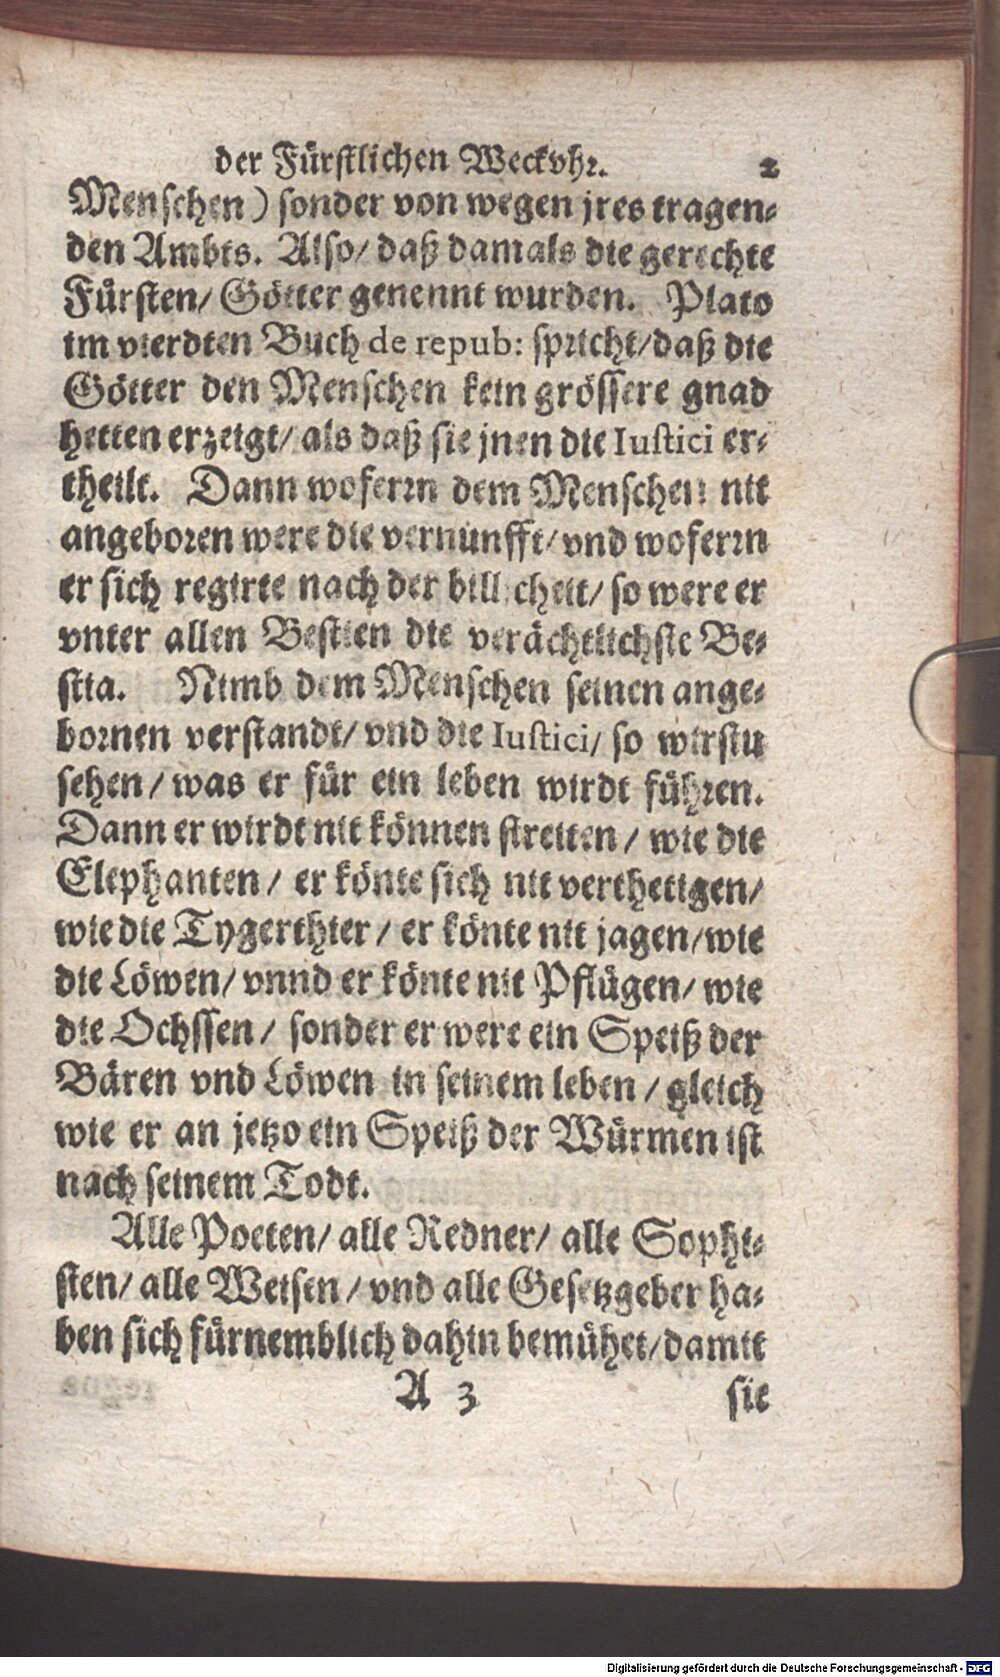 der Fürstlichen Weckvhr. 2
Menschen) sonder von wegen jres tragen-
den Ambts. Also/ daß damals die gerechte
Fürsten/ Götter genennt wurden. Plato
im vierdten Buch de repub: spricht/ daß die
Götter den Menschen kein grössere gnad
hetten erzeigt/ als daß sie jnen die Iustici er-
theilt. Dann woferrn dem Menschen nit
angeboren were die vernunfft/ vnd woferrn
er sich regirte nach der billicheit/ so were er
vnter allen Bestien die verächtlichste Be-
stia. Nimb dem Menschen seinen ange-
bornen verstandt/ vnd die Iustici/ so wirstu
sehen/ was er für ein leben wirdt führen.
Dann er wirdt nit können streiten/ wie die
Elephanten/ er könte sich nit vertheitigen/
wie die Tygerthier/ er könte nit jagen/ wie
die Löwen/ vnnd er könte nit Pflügen/ wie
die Ochssen/ sonder er were ein Speiß der
Bären vnd Löwen in seinem leben/ gleich
wie er an jetzo ein Speiß der Würmen ist
nach seinem Todt.
Alle Poeten/ alle Redner/ alle Sophi-
sten/ alle Weisen/ vnd alle Gesetzgeber ha-
ben sich fürnemblich dahin bemühet/ damit
A 3 sie
Digitalisierung gefördert durch die Deutsche Forschungsgemeinschaft - DFG